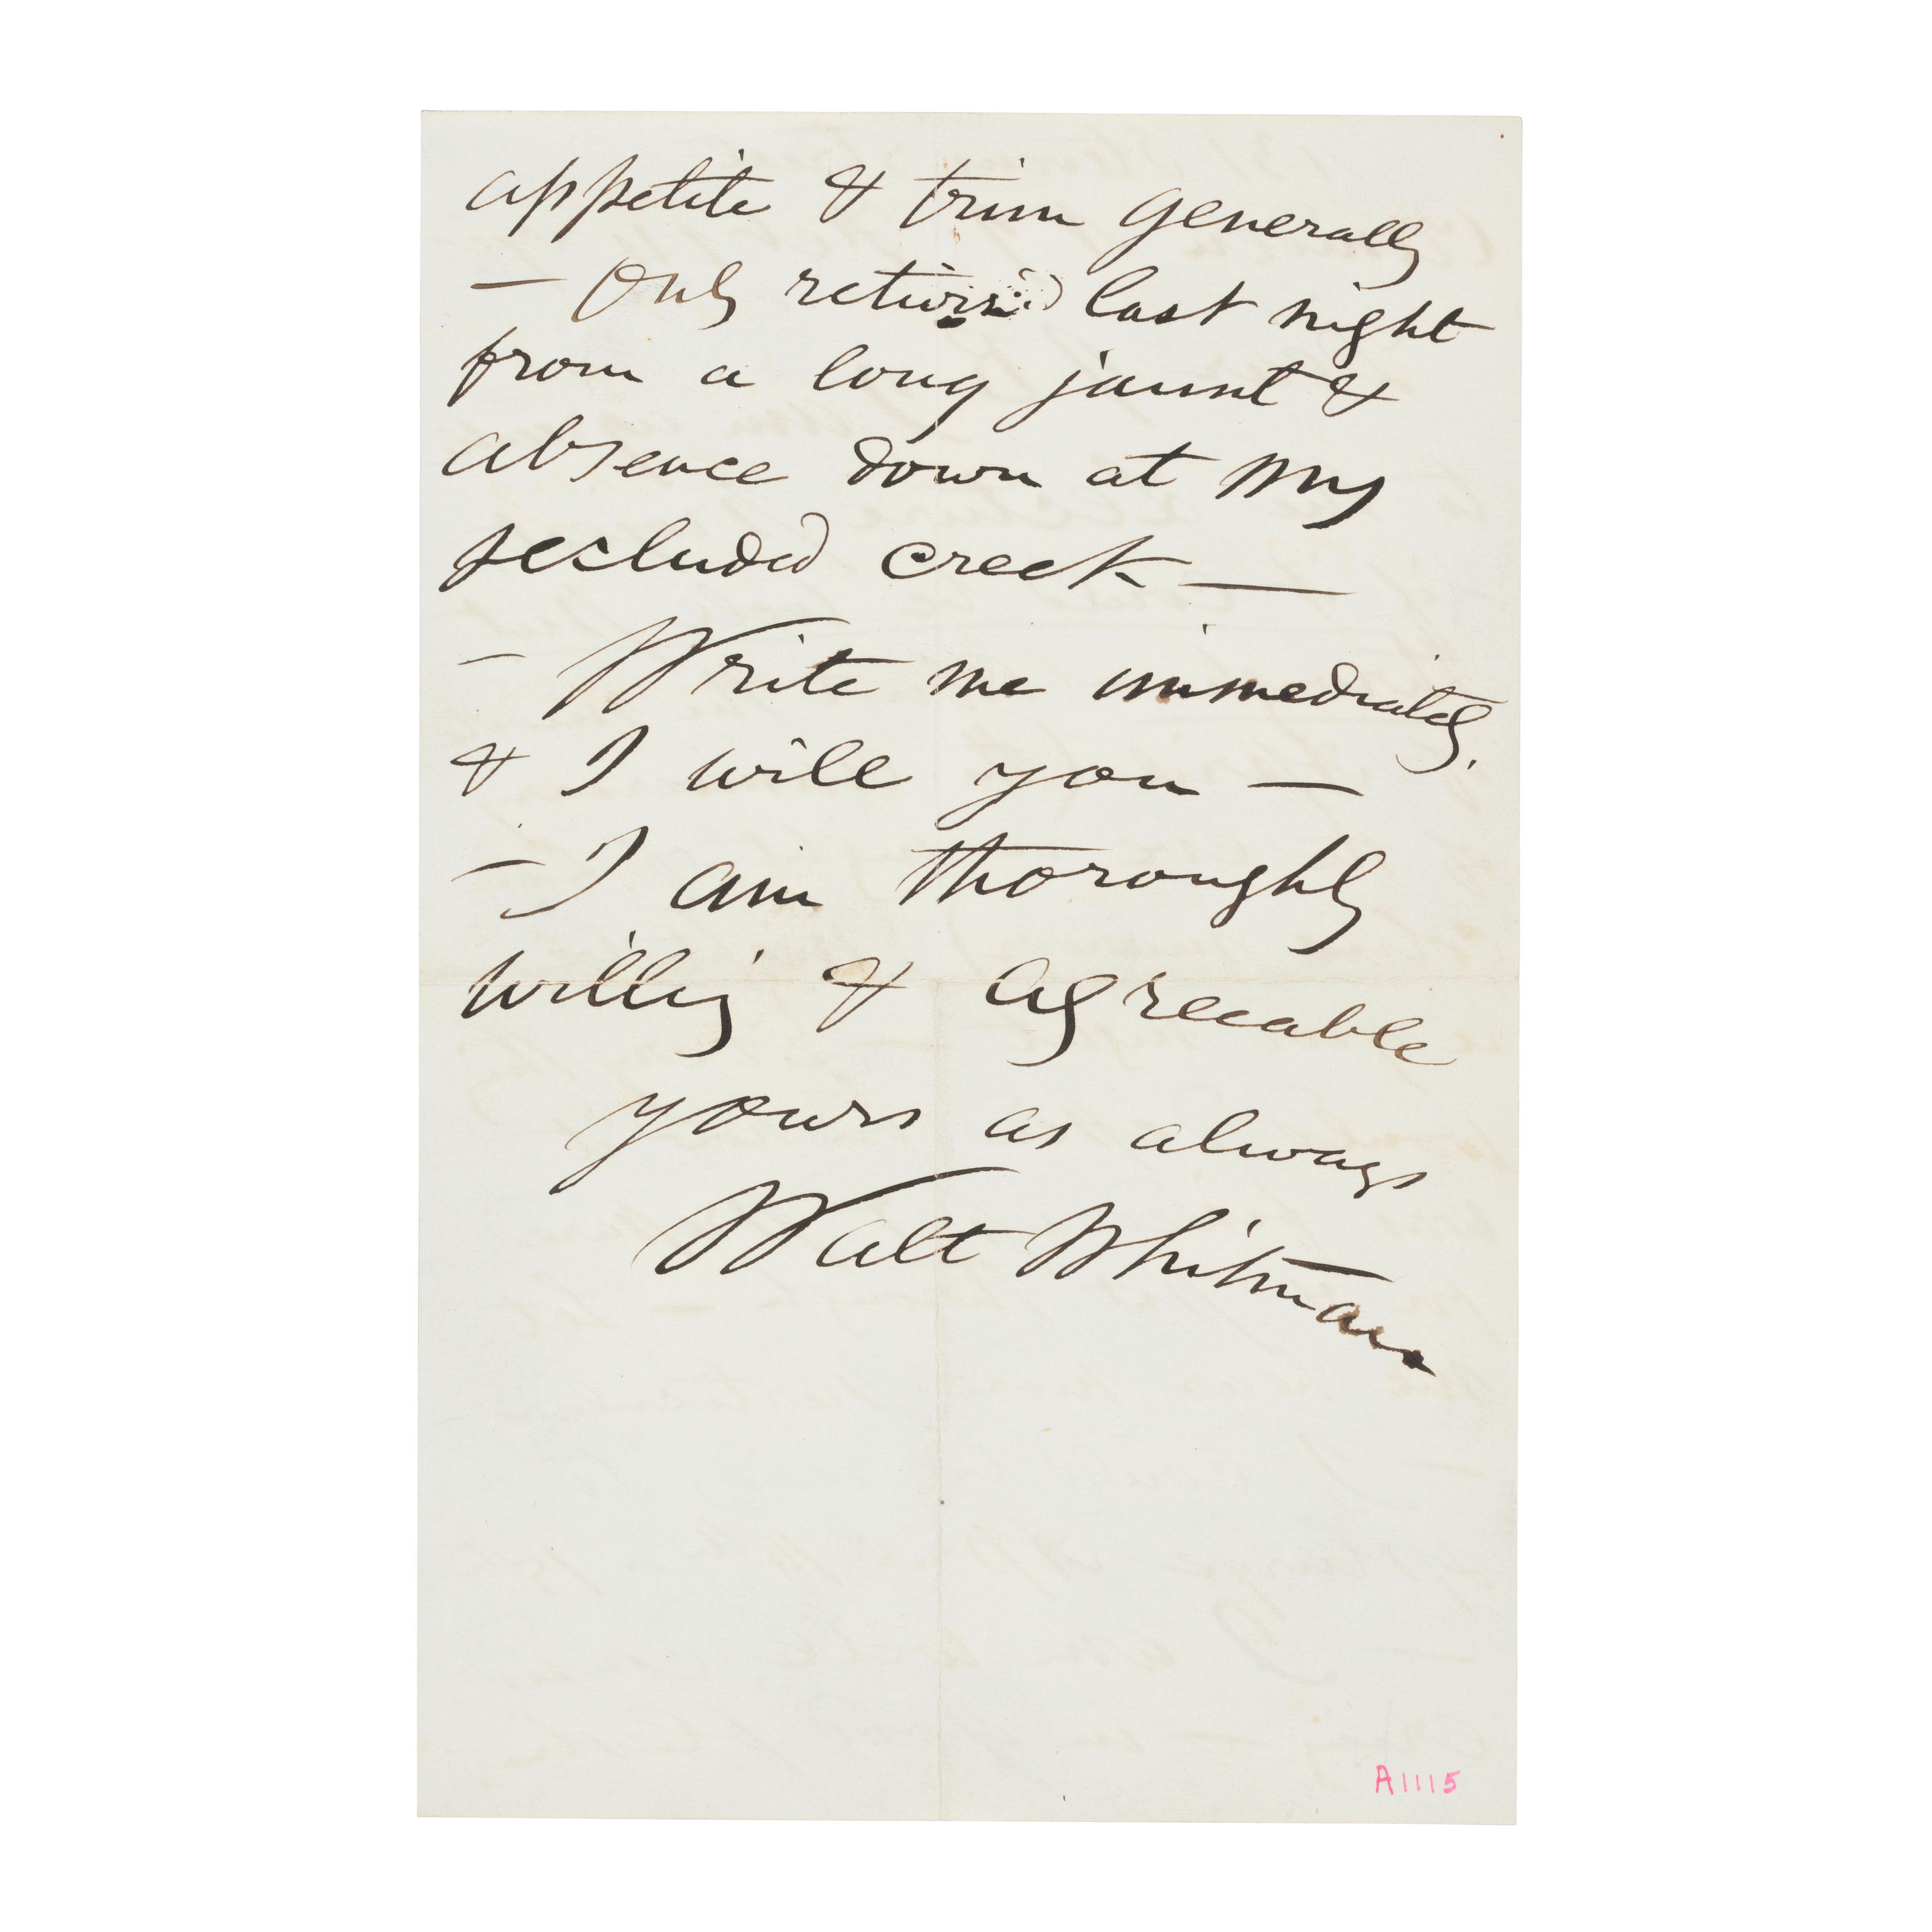 appetite & trim generally
— Only return'd last night
from a long jaunt &
absence down at my
secluded creek —
— Write me immediately,
& I will you —
— I am thoroughly
willing & agreeable
yours as always
Walt Whitman
A1115